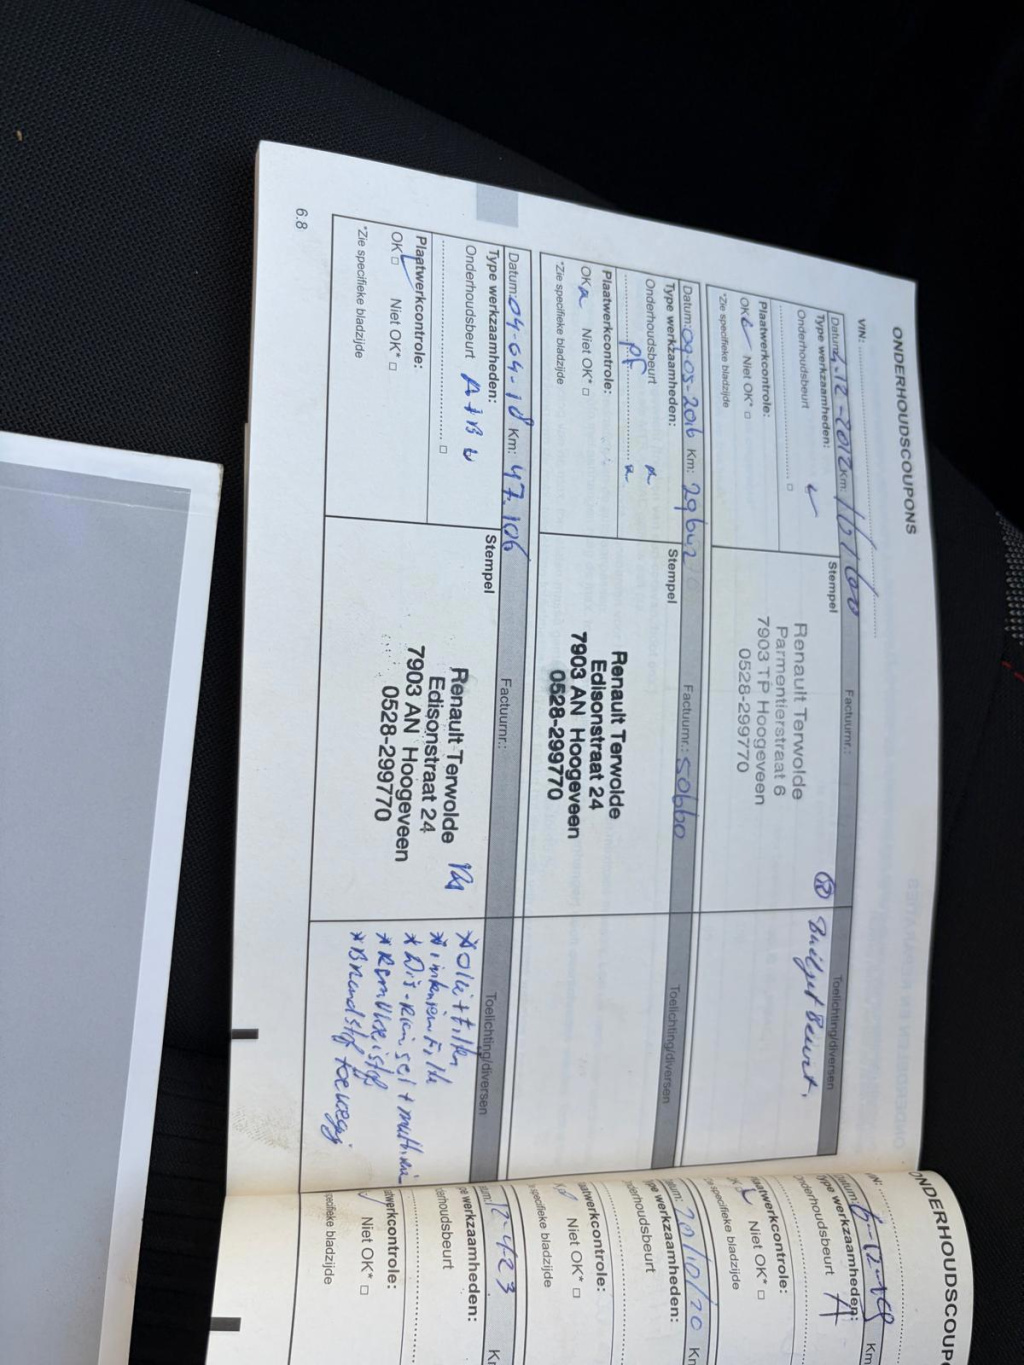 ONDERHOUDSCOUPONS
VIN:
Datum: 4-12-2012 Km:
Factuurnr.:
Type werkzaamheden:
Onderhoudsbeurt
Plaatwerkcontrole:
OK Niet OK* □
*Zie specifieke bladzijde
Stempel
Renault Terwolde
Parmentierstraat 6
7903 TP Hoogeveen
0528-299770
Toelichting/diversen
Budget Beurt,
Datum: 09-05-2016 Km:
Factuurnr.: 50660
Type werkzaamheden:
Onderhoudsbeurt
pf
Plaatwerkcontrole:
OK Niet OK* □
*Zie specifieke bladzijde
Stempel
Renault Terwolde
Edisonstraat 24
7903 AN Hoogeveen
0528-299770
Toelichting/diversen
Datum: 04-04-18 Km: 47.106
Factuurnr.:
Type werkzaamheden:
Onderhoudsbeurt A+B
Plaatwerkcontrole:
OK □ Niet OK* □
*Zie specifieke bladzijde
Stempel
Renault Terwolde
Edisonstraat 24
7903 AN Hoogeveen
0528-299770
Toelichting/diversen
*Olie+filter
*interieurfilter
*Dis-riem set + multiriem
*Remvloeistof
*Brandstof toevoeging
6.8
ONDERHOUDSCOUP
6-12-19 Km
ype werkzaamheden:
nderhoudsbeurt A
aatwerkcontrole:
Niet OK* □
e specifieke bladzijde
20/10/20 Km
pe werkzaamheden:
nderhoudsbeurt
atwerkcontrole:
Niet OK* □
specifieke bladzijde
12-4-23 Km
e werkzaamheden:
derhoudsbeurt
twerkcontrole:
Niet OK* □
pecifieke bladzijde